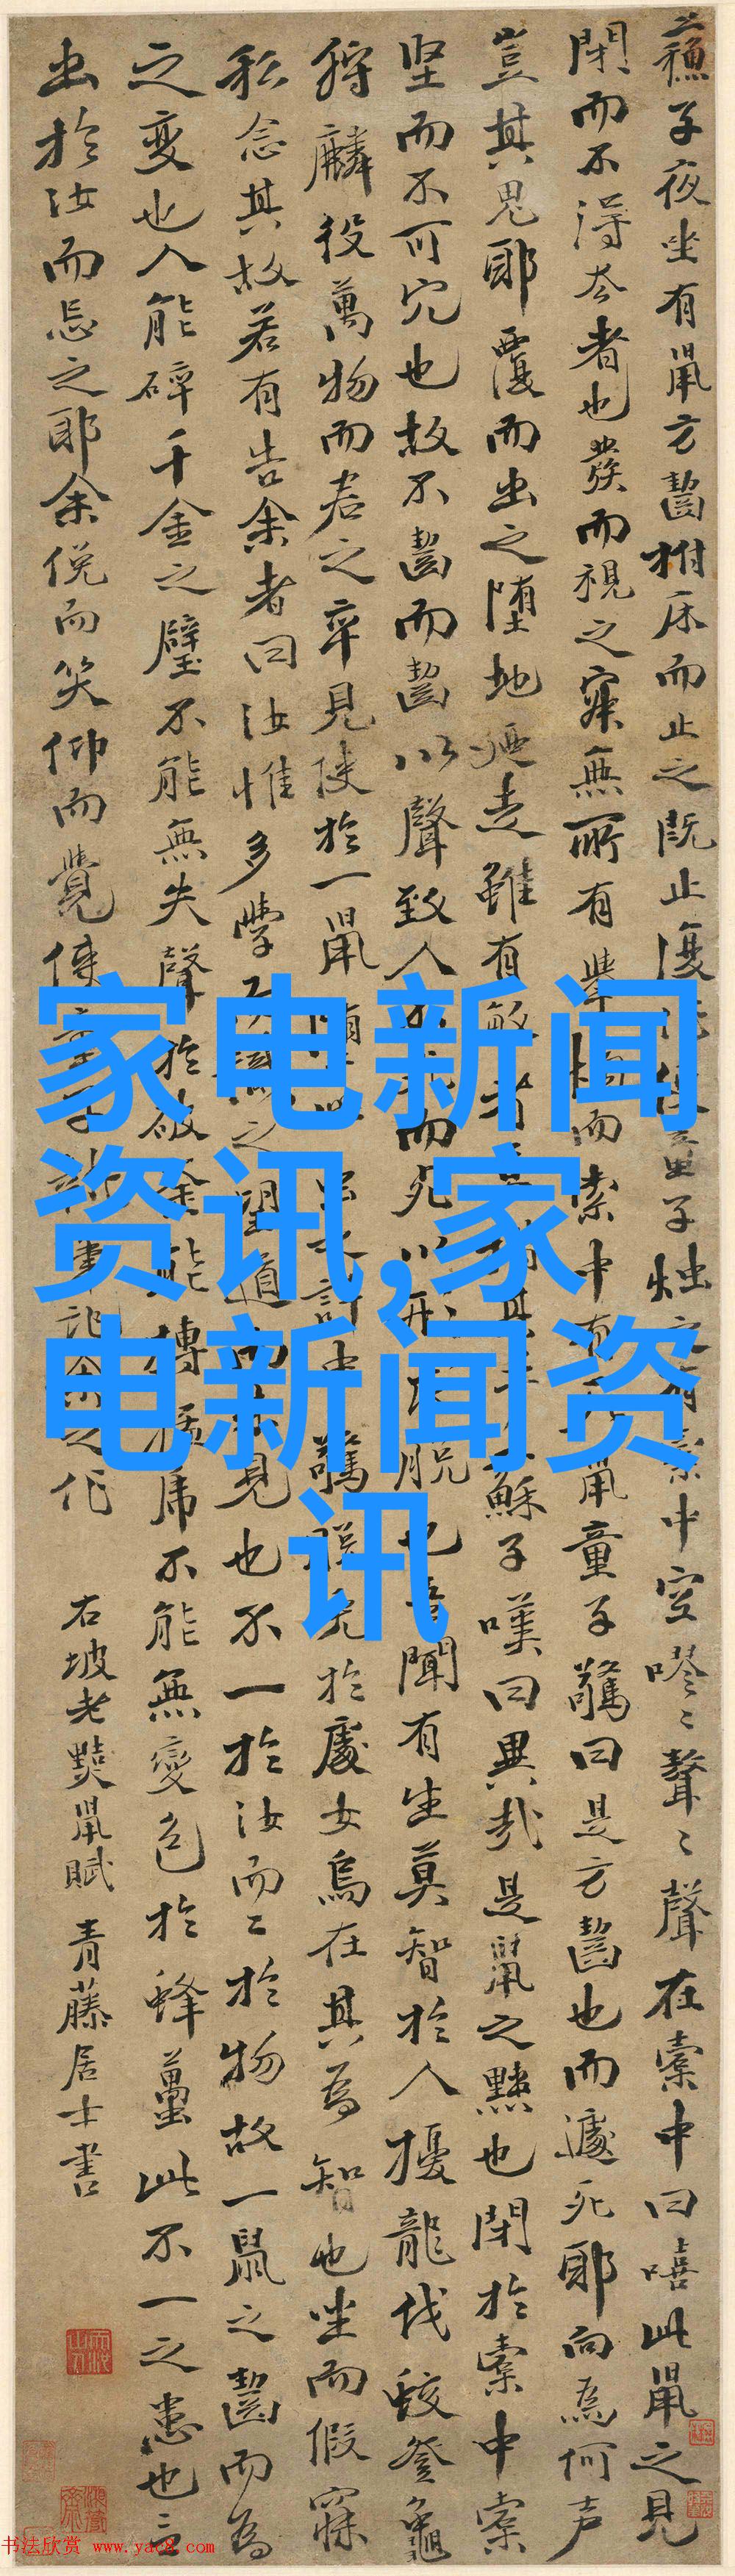 蘇子夜坐有鼠方齧拊床而止之既止復作使童子燭之有橐中空嘐〻聱〻聲在橐中曰嘻此鼠之見
閉而不得去者也發而視之寂無所有舉燭而索中有死鼠童子驚曰是方齧也而遽死耶向為何声
豈其鬼耶覆而出之墮地迺走雖有敏者莫措其手蘇子嘆曰異哉是鼠之黠也閉於橐中橐
坚而不可穴也故不齧而齧以聲致人不死而死以形求脱也吾聞有生莫智於人擾龍伐蛟登龜
狩麟役萬物而君之卒見使於一鼠墮此虫之計中驚脱兔於處女烏在其為智也坐而假寐
私念其故若有告余者曰汝惟多學而識之望道而未見也不一於汝而二於物故一鼠之齧而為
之變也人能碎千金之璧不能無失聲於破釜能搏猛虎不能無變色於蜂蠆此不一之患也言
出於汝而忘之耶余俛而笑仰而覺使童子執筆記余之作
右坡老黠鼠賦 青藤居士書
家电新闻
资讯,家
电新闻资
讯
书法欣赏 www.yac8.com